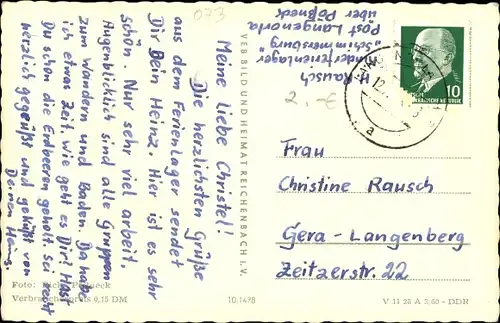 073
Meine liebe Christel!
Die herzlichsten Grüße
aus dem Ferienlager sendet
Dir Dein Heinz. Hier ist es sehr
schön. Nur sehr viel arbeit.
Augenblicklich sind alle Gruppen
zum wandern und Baden. Da habe
ich etwas Zeit. wie geht es Dir! Hast
Du schon die Erdbeeren geholt. Sei recht
herzlich gegrüßt und geküßt von
Deinem Heinz.
VEB BILD UND HEIMAT REICHENBACH i. V.
H. Rausch
Kinderferienlager
"Schimmersburg"
Post Langenorla
über Pößneck
2,-€
10
DEUTSCHE DEMOKRATISCHE REPUBLIK
Frau
Christine Rausch
Gera-Langenberg
Zeitzerstr. 22
Foto: Pößneck
Verbraucherpreis 0,15 DM
10/1478
V 11 28 A 3/60 - DDH